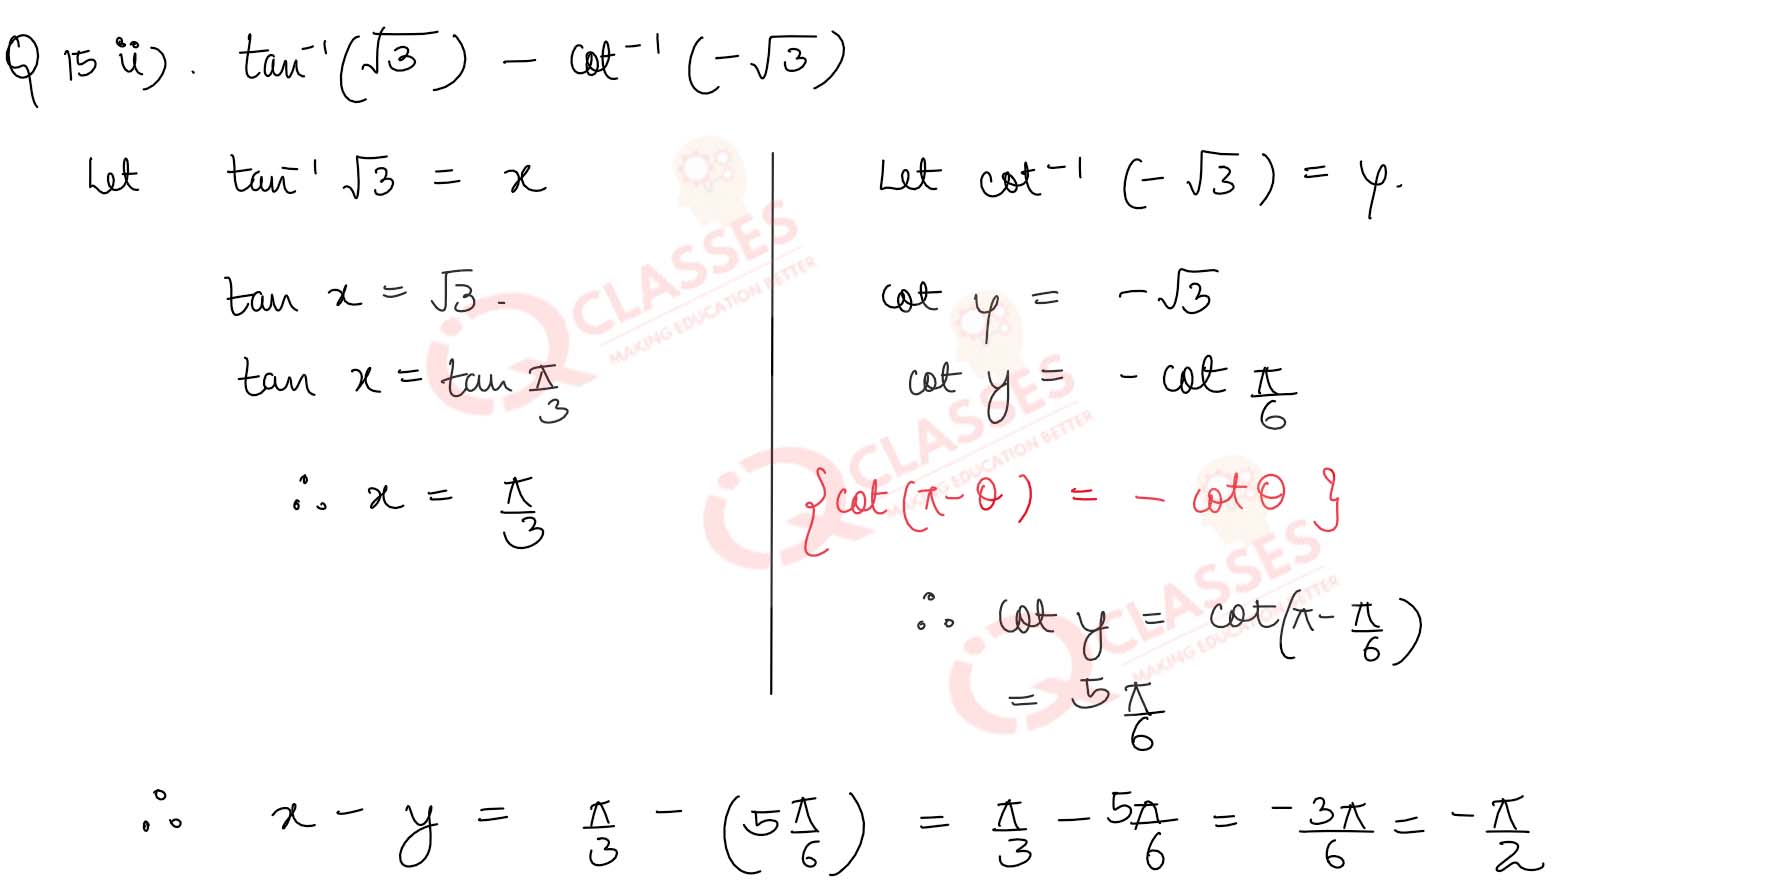 Q 15 ii). tan⁻¹(√3) − cot⁻¹(−√3)
Let tan⁻¹ √3 = x
tan x = √3.
tan x = tan π/3
∴ x = π/3
Let cot⁻¹ (−√3) = y.
cot y = −√3
cot y = − cot π/6
{cot(π−θ) = − cot θ}
∴ cot y = cot(π − π/6)
= 5π/6
∴ x − y = π/3 − (5π/6) = π/3 − 5π/6 = −3π/6 = −π/2
iQ CLASSES
MAKING EDUCATION BETTER
iQ CLASSES
MAKING EDUCATION BETTER
iQ CLASSES
MAKING EDUCATION BETTER